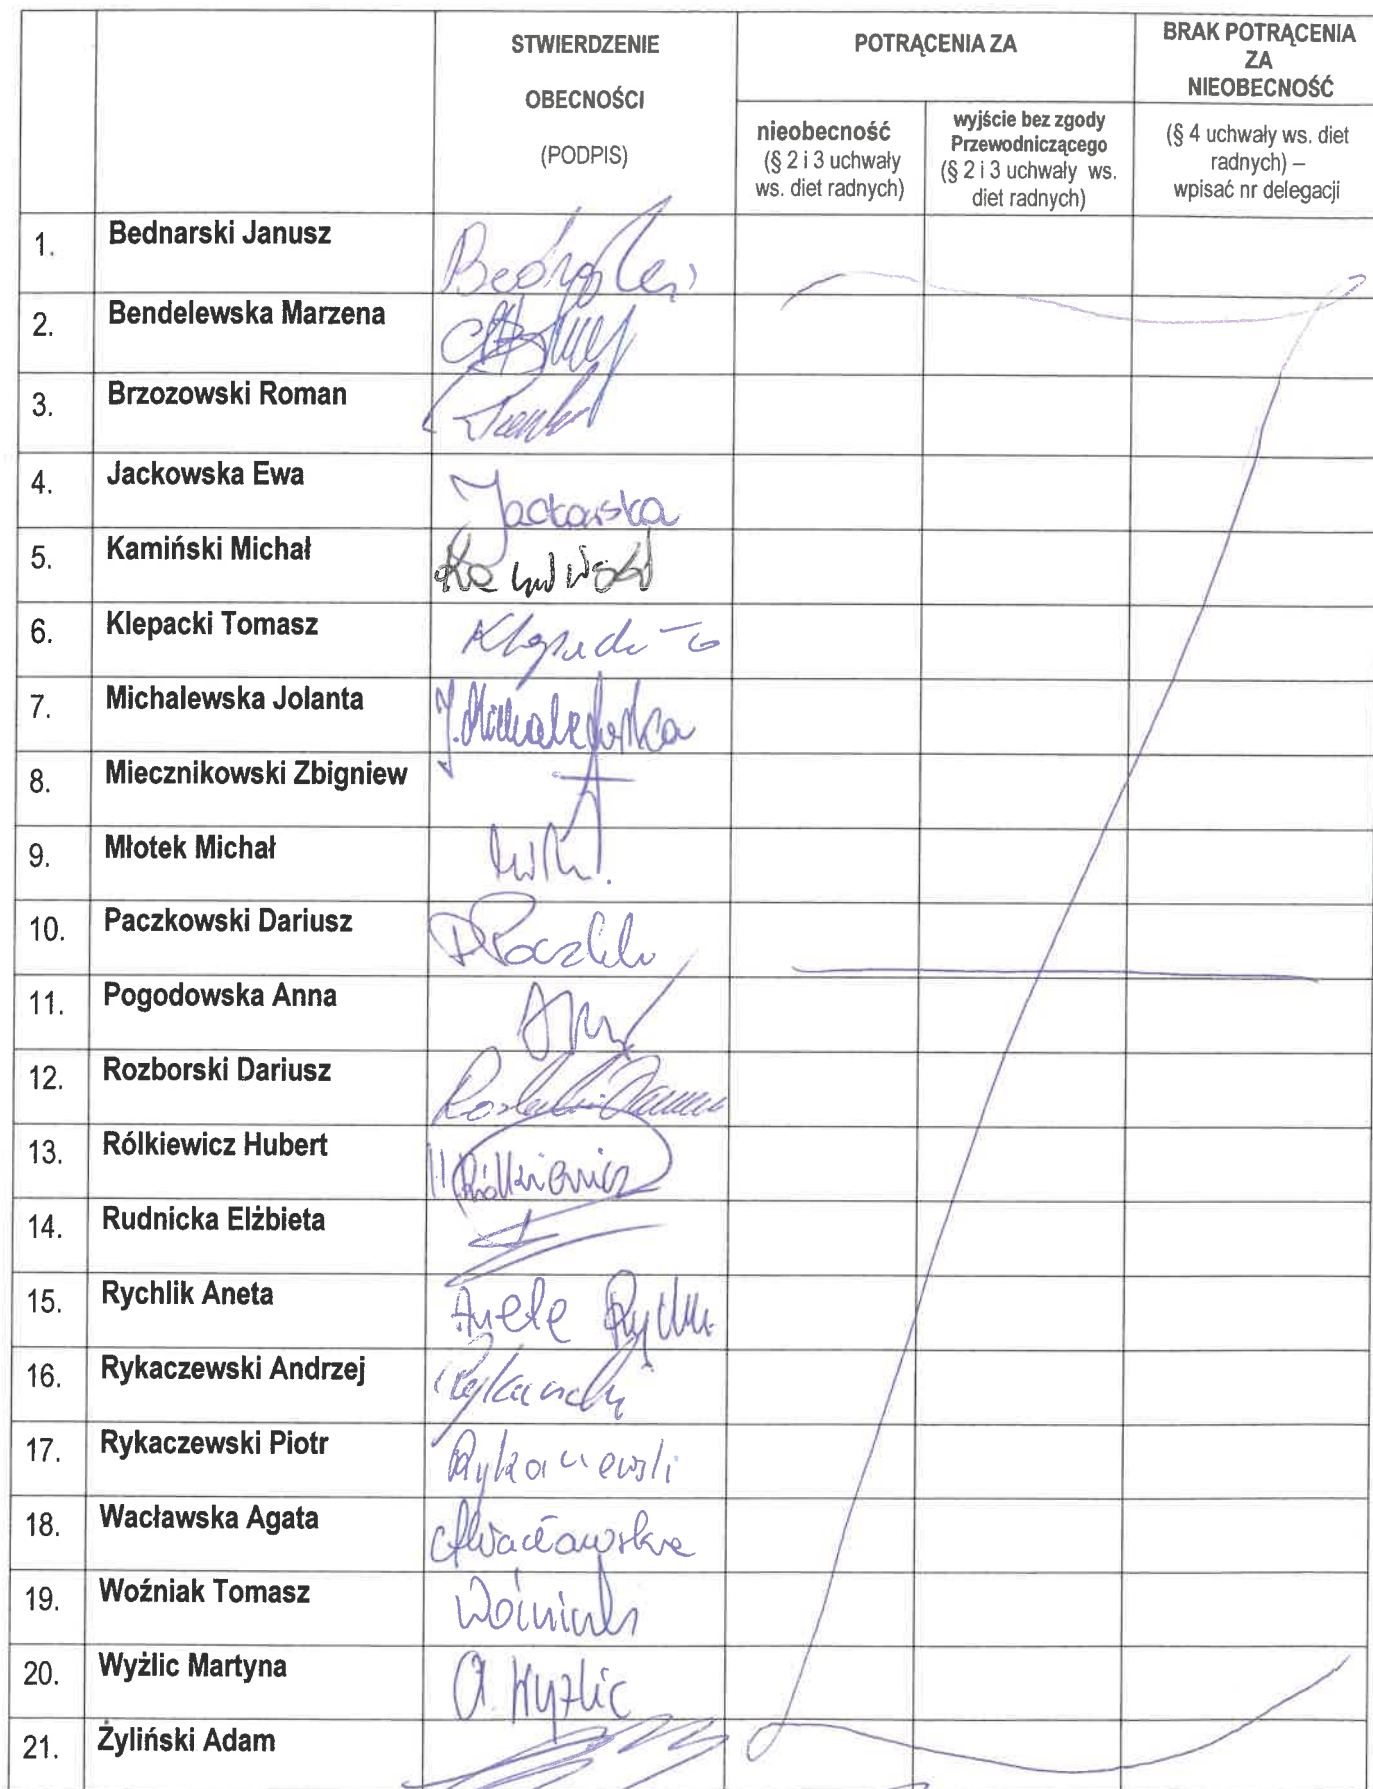 STWIERDZENIE
OBECNOŚCI
(PODPIS)
POTRĄCENIA ZA
BRAK POTRĄCENIA
ZA
NIEOBECNOŚĆ
nieobecność
(§ 2 i 3 uchwały
ws. diet radnych)
wyjście bez zgody
Przewodniczącego
(§ 2 i 3 uchwały ws.
diet radnych)
(§ 4 uchwały ws. diet
radnych) –
wpisać nr delegacji
1. Bednarski Janusz
2. Bendelewska Marzena
3. Brzozowski Roman
4. Jackowska Ewa Jackowska
5. Kamiński Michał
6. Klepacki Tomasz
7. Michalewska Jolanta J. Michalewska
8. Miecznikowski Zbigniew
9. Młotek Michał
10. Paczkowski Dariusz
11. Pogodowska Anna
12. Rozborski Dariusz
13. Rólkiewicz Hubert H. Rólkiewicz
14. Rudnicka Elżbieta
15. Rychlik Aneta Aneta
16. Rykaczewski Andrzej
17. Rykaczewski Piotr Rykaczewski
18. Wacławska Agata AWacławska
19. Woźniak Tomasz Woźniak
20. Wyżlic Martyna Wyżlic
21. Żyliński Adam